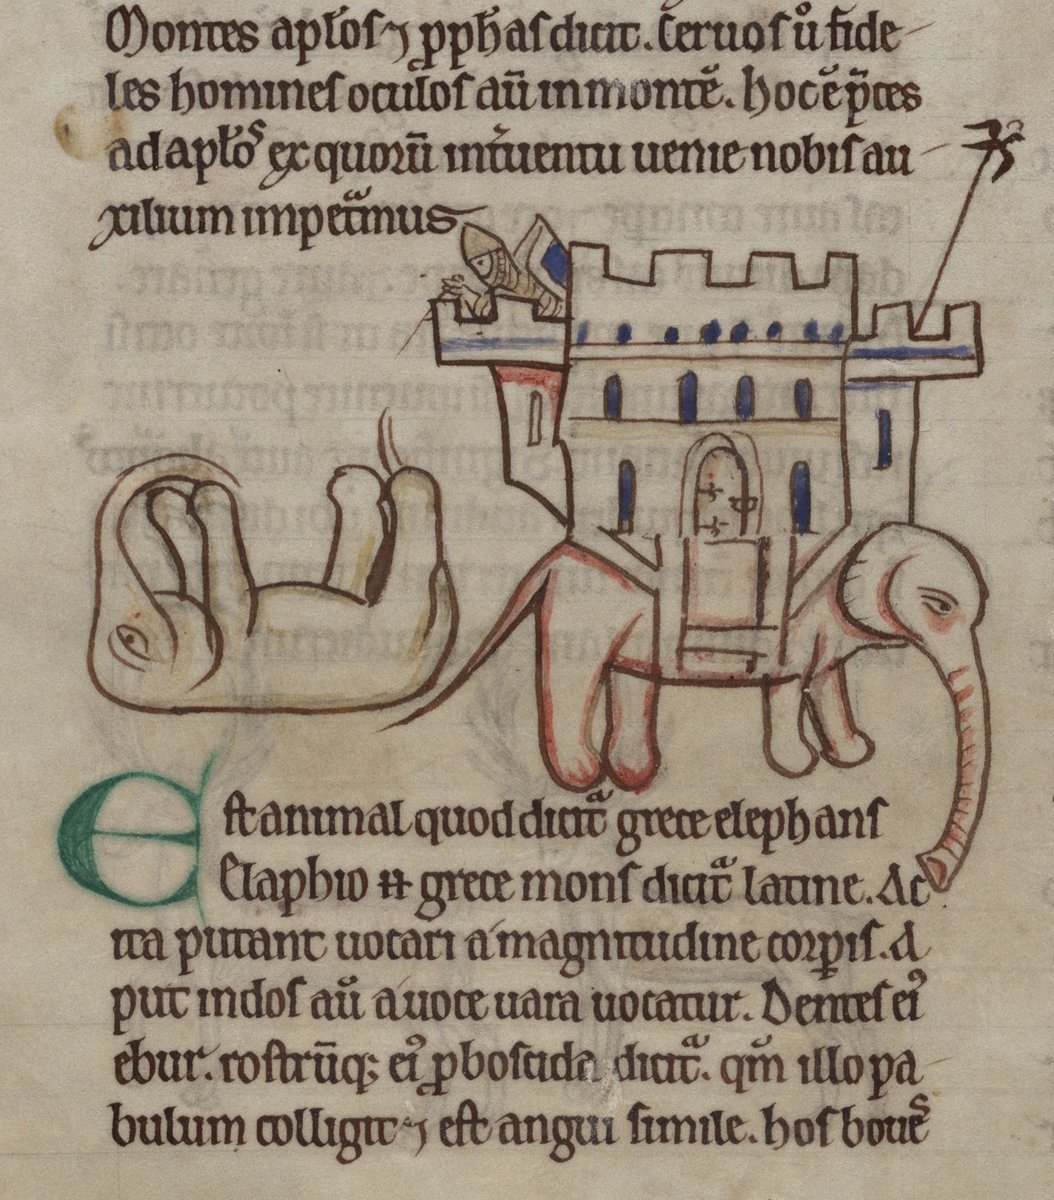 Montes apłos ⁊ ꝓphas dicit. Ceruos ů fide-
les homines oculos aū in montē. hoc ē p̄ces
ad apłōs ex quorū int̾uentu uenie nobis au-
xilium impetᵃmus
Est animal quod dicitᵃ grece elephans
Elaphio ⁊ grece mons dicitᵃ latine. Ac
ita putant uocari a magnitudine corꝑis. A
put indos aū a uoce uara uocatur. Dentes eiꝰ
ebur. rostrūq; eiꝰ ꝓboscida dicitᵃ. qm̄ illo pa-
bulum colligit ⁊ est angui simile. hos boues